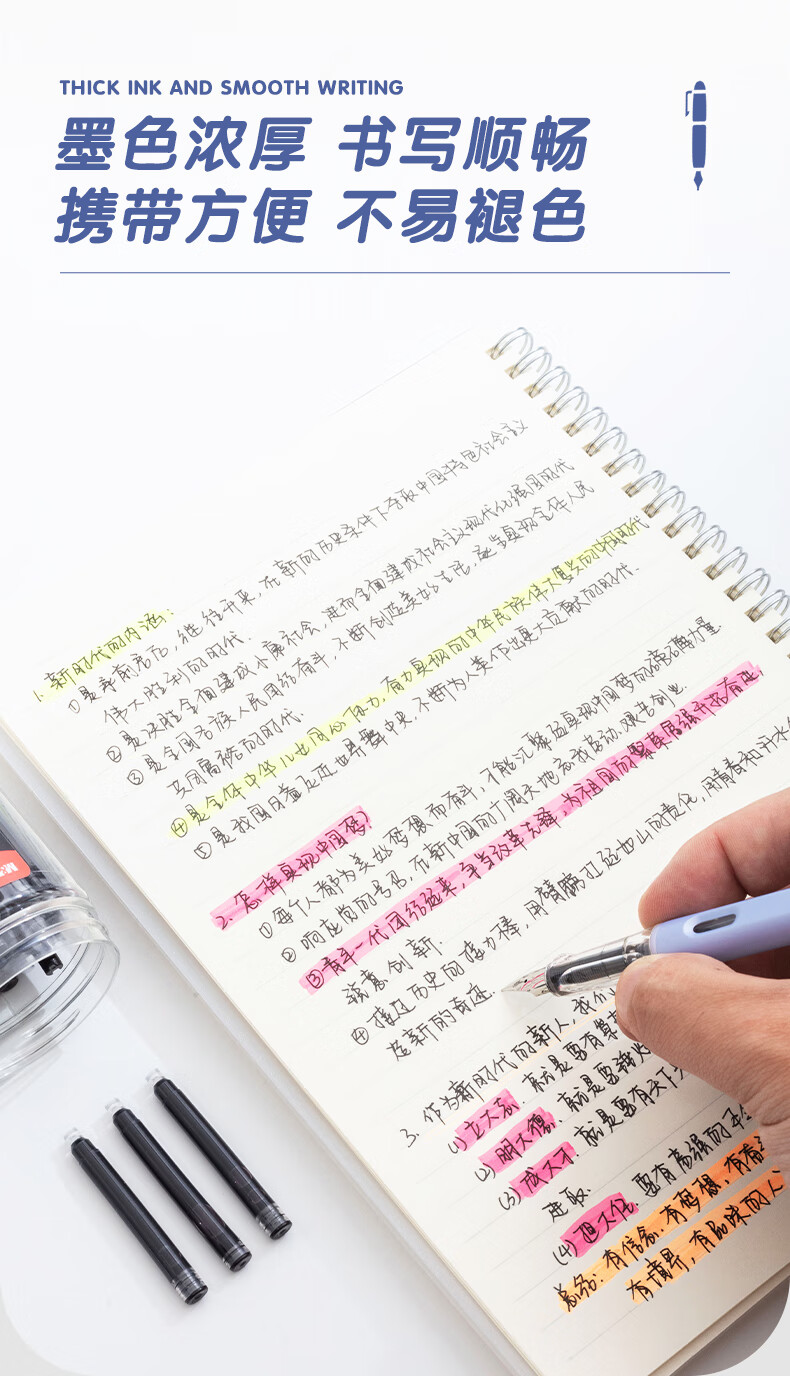 THICK INK AND SMOOTH WRITING
墨色浓厚 书写顺畅
携带方便 不易褪色
1. 新时代的内涵:
①是承前启后,继往开来,在新的历史条件下夺取中国特色社会主义
伟大胜利的时代.
②是决胜全面建成小康社会,进而全面建成社会主义现代化强国的时代
③是全国各族人民团结奋斗,不断创造美好生活,逐步实现全体人民
共同富裕的时代.
④是全体中华儿女同心协力,奋力实现的中华民族伟大复兴的中国梦时代
⑤是我国日益走近世界舞台中央,不断为人类作出更大贡献的时代.
2.怎样实现中国梦?
①每个人都为美好梦想而奋斗,才能汇聚起实现中国梦的磅礴力量.
②响应党的号召,在新中国的广阔天地忘我劳动,艰苦创业.
③青年一代团结起来,争当改革先锋,为祖国的繁荣富强开拓奋进,
锐意创新.
④接过历史的接力棒,用肩膀扛起如山的责任,用青春和汗水创
造新的奇迹.
3. 作为新时代的新人,我们
(1)立大志.就是要有
(2)明大德.就是要
(3)成大才.就是要有
进取.
(4)担大任.要有高强的
总结:有信念.有梦想,有奋
有境界,有品味的人